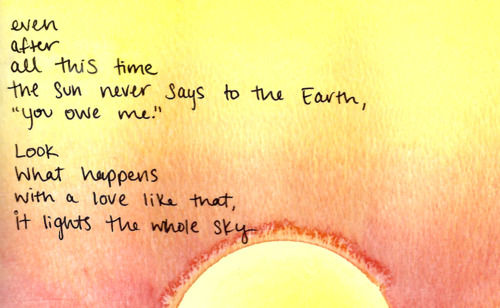 even
after
all this time
the sun never says to the Earth,
"you owe me."
Look
What happens
with a love like that,
it lights the whole sky